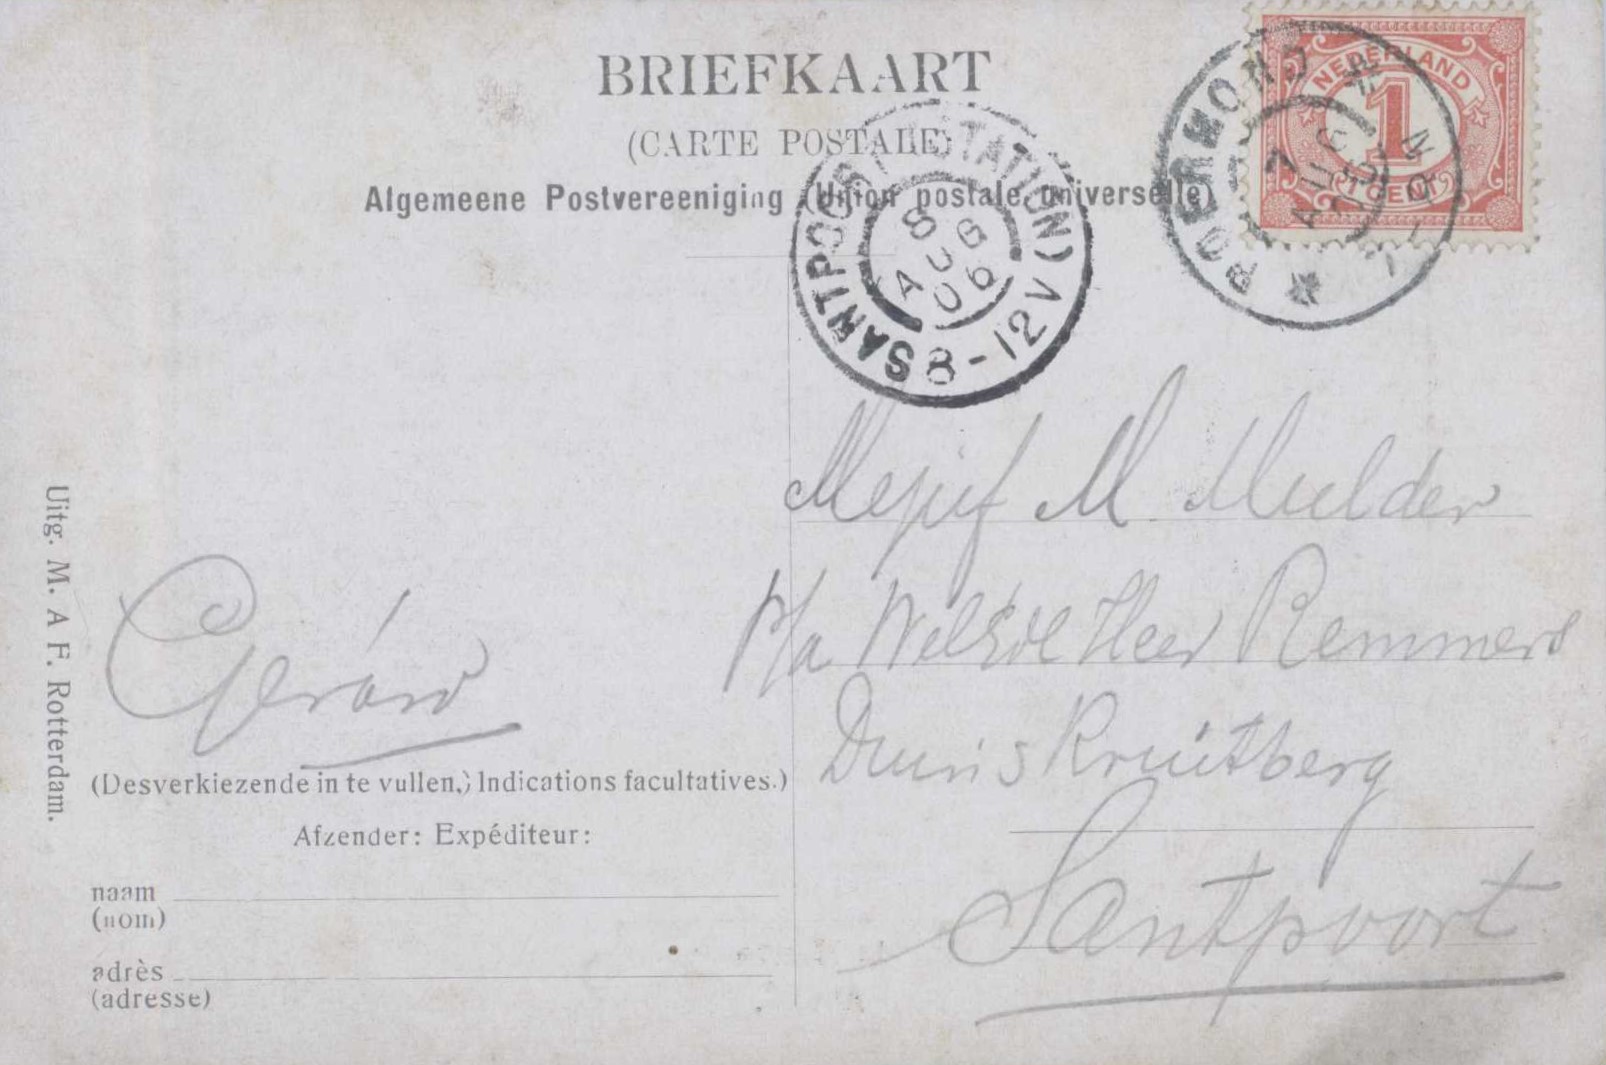 BRIEFKAART
(CARTE POSTALE)
Algemeene Postvereeniging (Union postale universelle)
NEDERLAND
1
1 CENT
ROERMOND
7 AUG
SANTPOORT (STATION)
8 AUG 06
8-12V
Mejuf M Mulder
p/a WelEde Heer Remmers
Duin's Kruitberg
Santpoort
Gerard
(Desverkiezende in te vullen,; Indications facultatives.)
Afzender: Expéditeur:
naam
(nom)
adrès
(adresse)
Uitg. M. A F. Rotterdam.